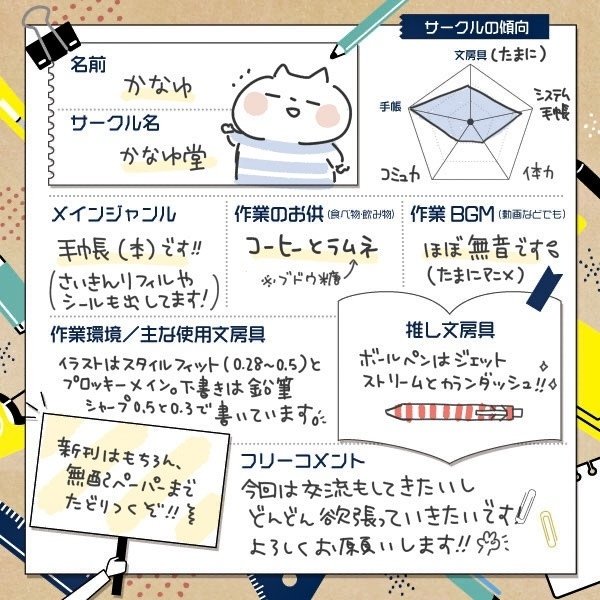 名前
かなゆ
サークル名
かなゆ堂
サークルの傾向
文房具(たまに)
手帳
システム
手帳
コミュ力
体力
メインジャンル
手帳(本)です!!
(さいきんリフィルや
シールも出してます!)
作業のお供(食べ物・飲み物)
コーヒーとラムネ
※ブドウ糖
作業BGM(動画などでも)
ほぼ無音です
(たまにアニメ)
作業環境/主な使用文房具
イラストはスタイルフィット(0.28~0.5)と
プロッキーメイン。下書きは鉛筆
シャープ0.5と0.3で書いています
推し文房具
ボールペンはジェット
ストリームとカランダッシュ!!
新刊はもちろん、
無配ペーパーまで
たどりつくぞ!!
フリーコメント
今回は交流もしてきたいし
どんどん欲張っていきたいです!
よろしくお願いします!!